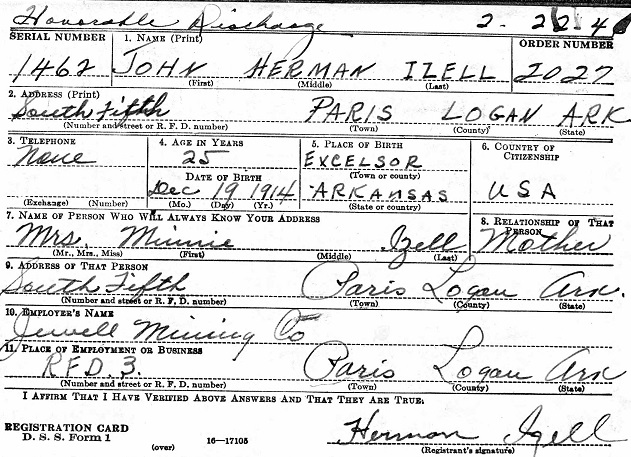 Honorable Discharge 2-22-4
SERIAL NUMBER 1. NAME (Print) ORDER NUMBER
1462 JOHN HERMAN IZELL 2027
(First) (Middle) (Last)
2. ADDRESS (Print)
South Fifth PARIS LOGAN ARK
(Number and street or R. F. D. number) (Town) (County) (State)
3. TELEPHONE 4. AGE IN YEARS 5. PLACE OF BIRTH 6. COUNTRY OF CITIZENSHIP
None 25 EXCELSOR
(Town or county)
DATE OF BIRTH
Dec 19 1914 ARKANSAS USA
(Exchange) (Number) (Mo.) (Day) (Yr.) (State or country)
7. NAME OF PERSON WHO WILL ALWAYS KNOW YOUR ADDRESS 8. RELATIONSHIP OF THAT PERSON
Mrs. Minnie Izell Mother
(Mr., Mrs., Miss) (First) (Middle) (Last)
9. ADDRESS OF THAT PERSON
South Fifth Paris Logan Ark.
(Number and street or R. F. D. number) (Town) (County) (State)
10. EMPLOYER'S NAME
Jewell Mining Co
11. PLACE OF EMPLOYMENT OR BUSINESS
R.F.D. 3. Paris Logan Ark
(Number and street or R. F. D. number) (Town) (County) (State)
I AFFIRM THAT I HAVE VERIFIED ABOVE ANSWERS AND THAT THEY ARE TRUE.
REGISTRATION CARD
D. S. S. Form 1 Herman Izell
(over) 16—17105 (Registrant's signature)